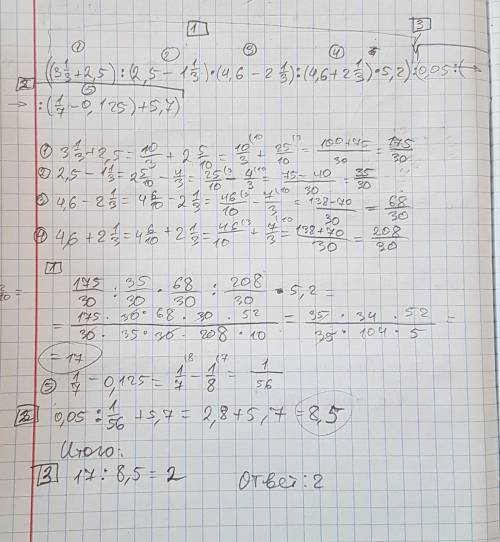 1 3
① ② ③ ④ 5
((3 1/3 + 2,5) : (2,5 − 1 1/3) · (4,6 − 2 1/3) : (4,6 + 2 1/3) · 5,2) : 0,05 : (→
2 ⑤
→ : (1/7 − 0,125) + 5,7)
① 3 1/3 + 2,5 = 10/3 + 2 5/10 = 10/3 (10 + 25/10 (3 = 100+75/30 = 175/30
② 2,5 − 1 1/3 = 2 5/10 − 4/3 = 25/10 (3 − 4/3 (10 = 75−40/30 = 35/30
③ 4,6 − 2 1/3 = 4 6/10 − 2 1/3 = 46/10 (3 − 7/3 (10 = 138−70/30 = 68/30
④ 4,6 + 2 1/3 = 4 6/10 + 2 1/3 = 46/10 (3 + 7/3 (10 = 138+70/30 = 208/30
1
175/30 : 35/30 · 68/30 : 208/30 · 5,2 =
= 175 · 30 · 68 · 30 · 52 / 30 · 35 · 30 · 208 · 10 = 35 · 34 · 52 / 35 · 104 · 5 =
= 17
⑤ 1/7 − 0,125 = 1/7 (8 − 1/8 (7 = 1/56
2 0,05 : 1/56 + 5,7 = 2,8 + 5,7 = 8,5
Итого:
3 17 : 8,5 = 2 Ответ: 2